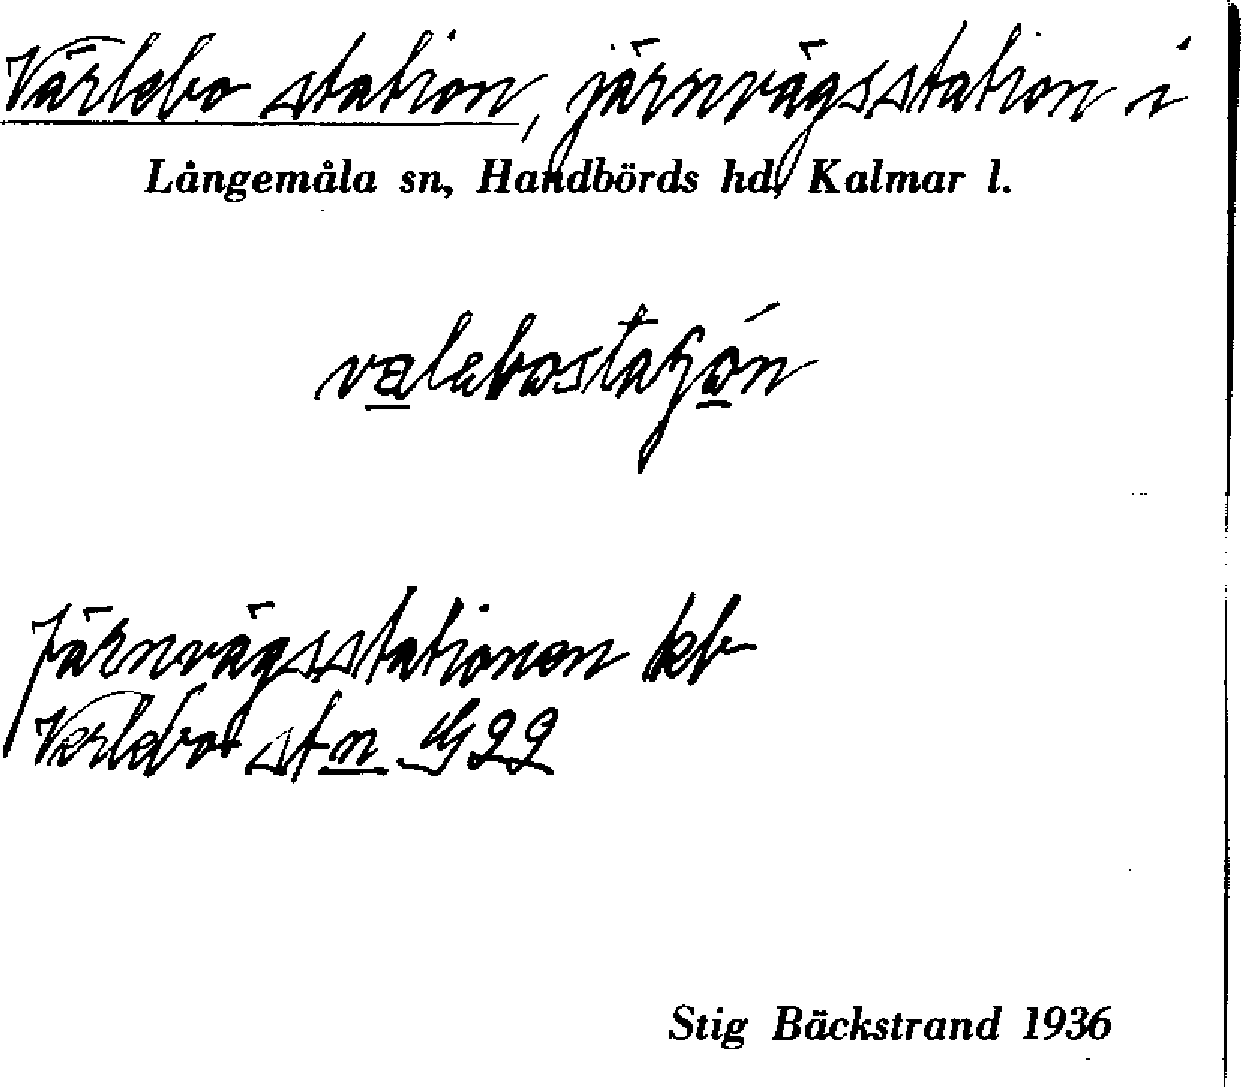 Värlebo station, järnvägsstation i
Långemåla sn, Handbörds hd, Kalmar l.
Järnvägsstationen kb
Verlebo stn G22
Stig Bäckstrand 1936